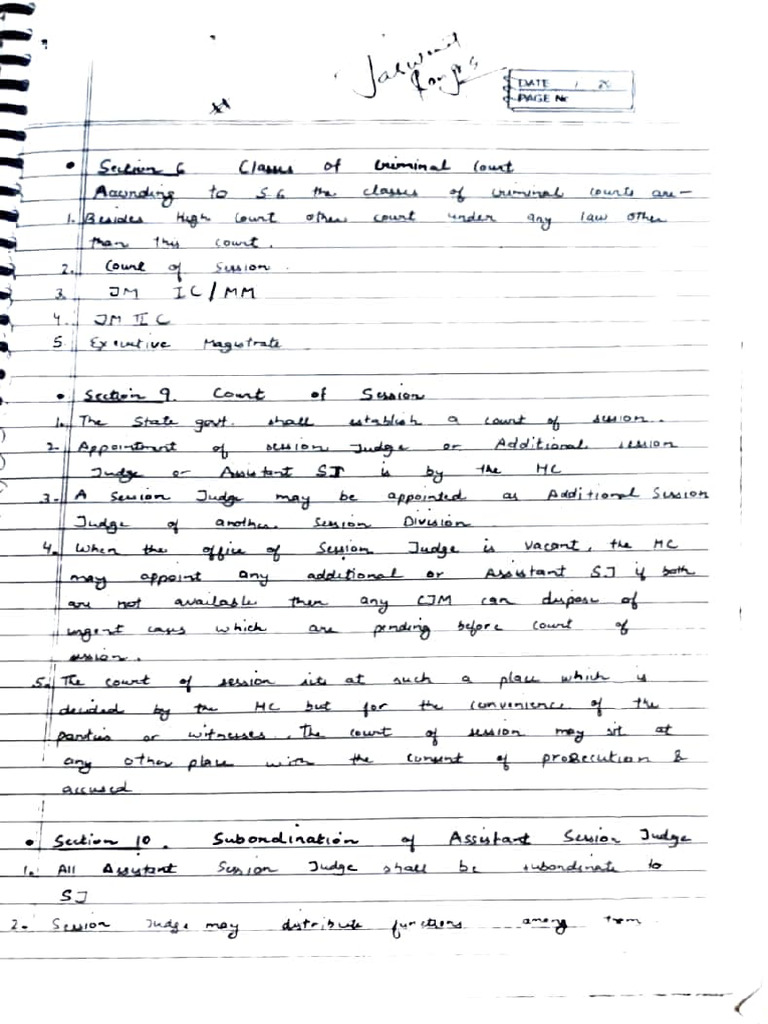 Jaswant
DATE
PAGE Nr
• Section 6 Classes of Criminal Court
According to S.6 the classes of criminal courts are -
1. Besides High Court other court under any law other
than this court.
2. Court of Session.
3. JM IC/MM
4. JM II C
5. Executive Magistrate
• Section 9. Court of Session
1. The State govt. shall establish a court of session.
2. Appointment of session Judge or Additional session
Judge or Assistant SJ is by the HC
3. A Session Judge may be appointed as Additional Session
Judge of another Session Division
4. When the office of Session Judge is vacant, the HC
may appoint any additional or Assistant SJ if both
are not available then any CJM can dispose of
urgent cases which are pending before court of
session.
5. The court of session sits at such a place which is
decided by the HC but for the convenience of the
parties or witnesses. The court of session may sit at
any other place with the consent of prosecution &
accused
• Section 10. Subordination of Assistant Session Judge
1. All Assistant Session Judge shall be subordinate to
SJ
2. Session Judge may distribute functions among them